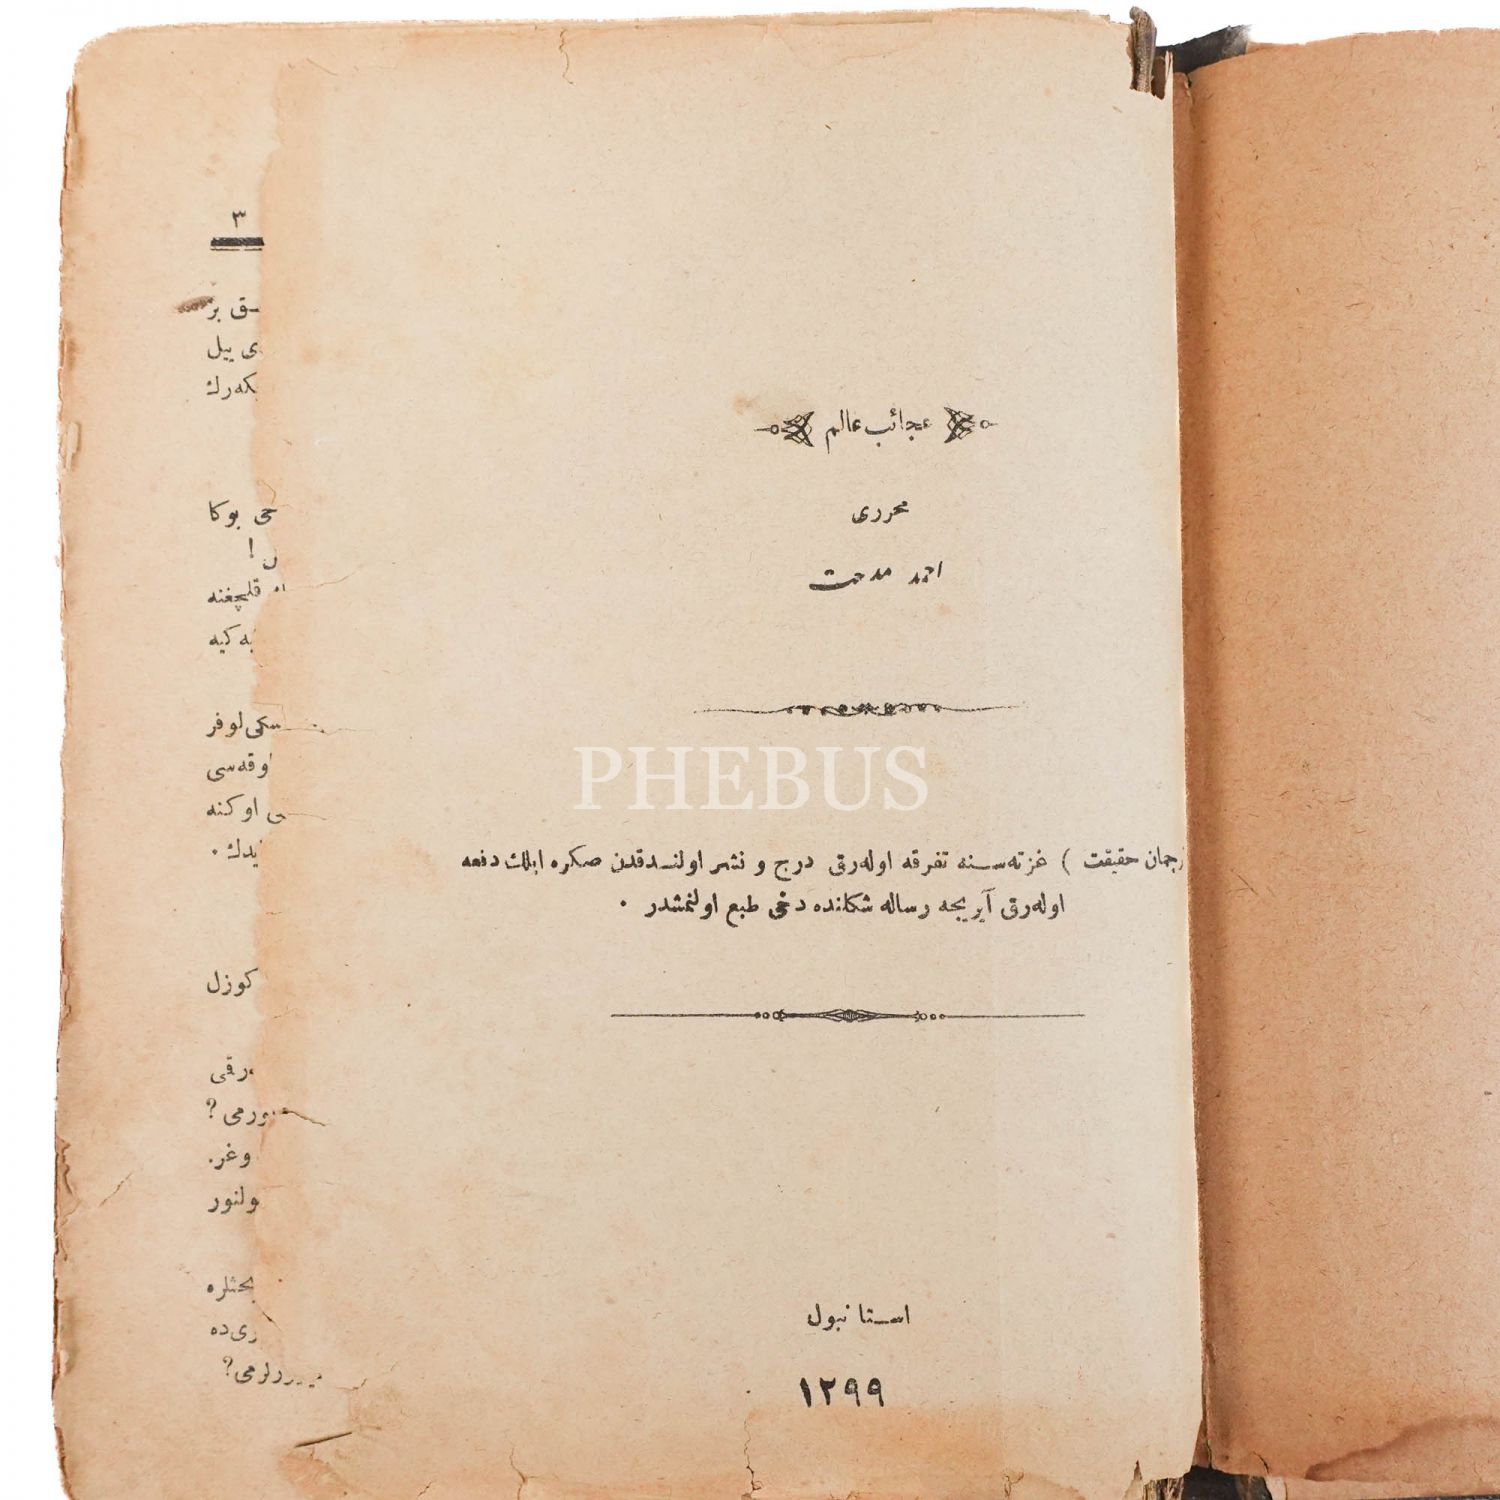 عجائب عالم
محرری
احمد مدحت
PHEBUS
جمان حقیقت ) غزته‌سنه تفرقه اوله‌رق درج و نشر اولندقدن صکره ایلك دفعه
اوله‌رق آیریجه رساله شکلنده دخی طبع اولنمشدر .
استانبول
١٢٩٩
٣
ق بر
ی ییل
که‌رك
حی بوکا
ن !
قلیچغنه
به کیه
سکی لوفر
اوقه‌سی
اوکنه
یدك .
کوزل
رقی
ورمی ?
وغر.
ولنور
بحثلره
ری ده
ردلرمی ?